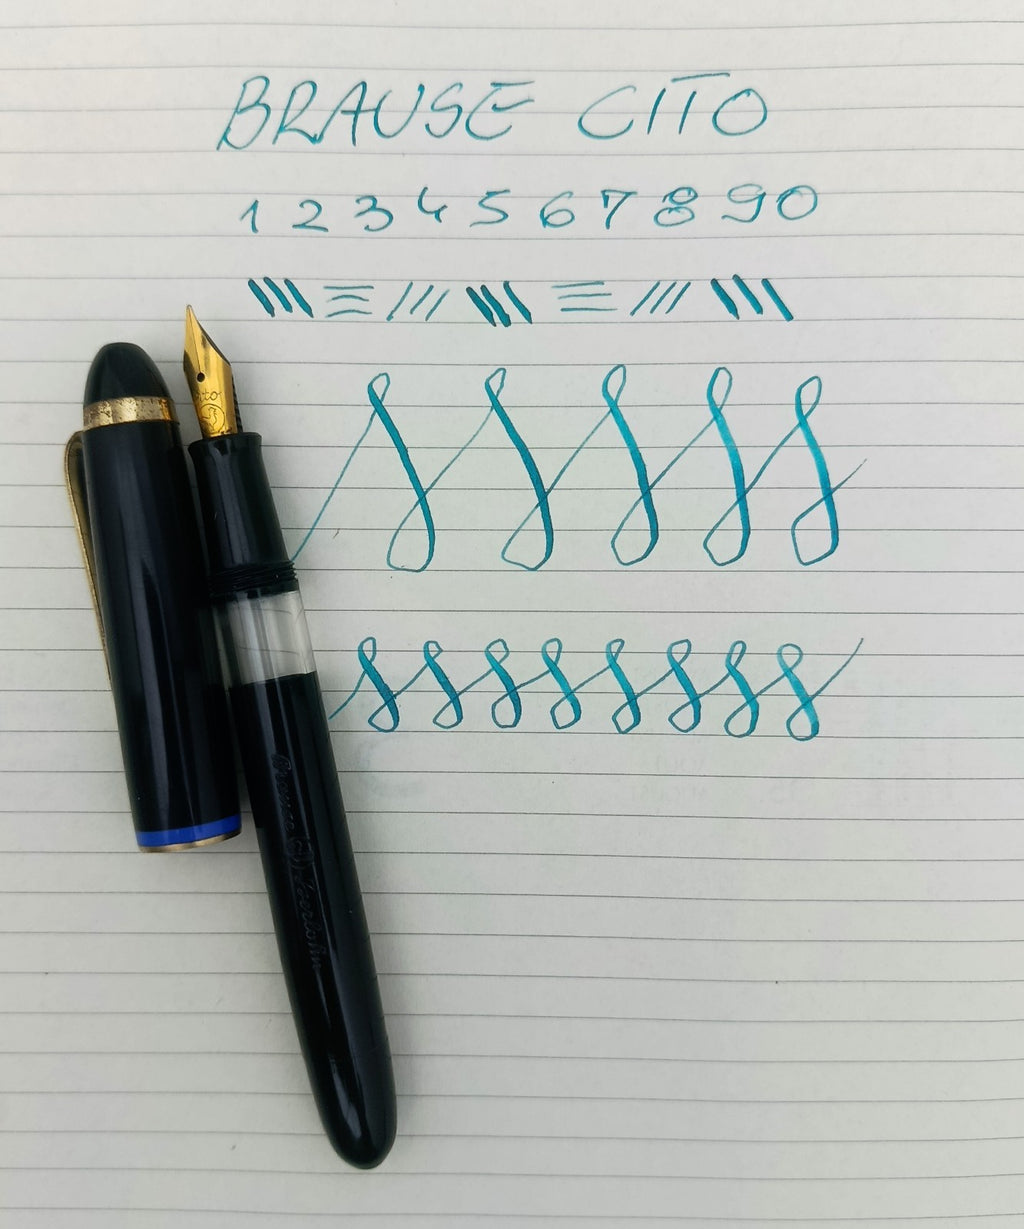 BRAUSE CITO
1 2 3 4 5 6 7 8 9 0
Cito
Brause Iserlohn